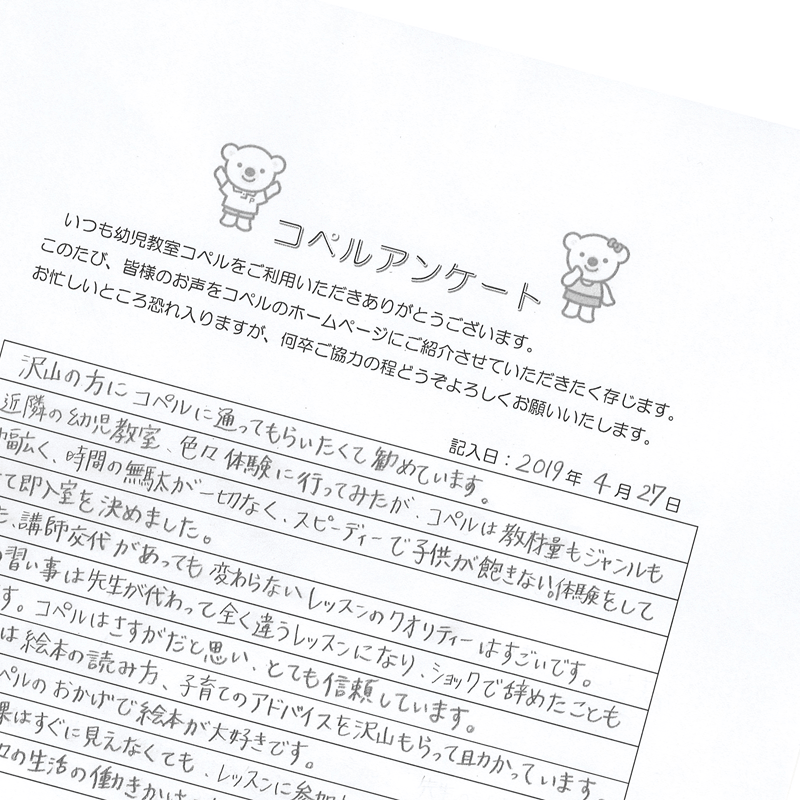 コペルアンケート
いつも幼児教室コペルをご利用いただきありがとうございます。
このたび、皆様のお声をコペルのホームページにご紹介させていただきたく存じます。
お忙しいところ恐れ入りますが、何卒ご協力の程どうぞよろしくお願いいたします。
記入日：2019年 4月 27日
沢山の方にコペルに通ってもらいたくて勧めています。
近隣の幼児教室、色々体験に行ってみたが、コペルは教材量もジャンルも
幅広く、時間の無駄が一切なく、スピーディーで子供が飽きない。体験をして
て即入室を決めました。
講師交代があっても変わらないレッスンのクオリティーはすごいです。
習い事は先生が代わって全く違うレッスンになり、ショックで辞めたことも
す。コペルはさすがだと思い、とても信頼しています。
は絵本の読み方、子育てのアドバイスを沢山もらって助かっています。
ペルのおかげで絵本が大好きです。
果はすぐに見えなくても、レッスンに参加
の生活の働きかけ